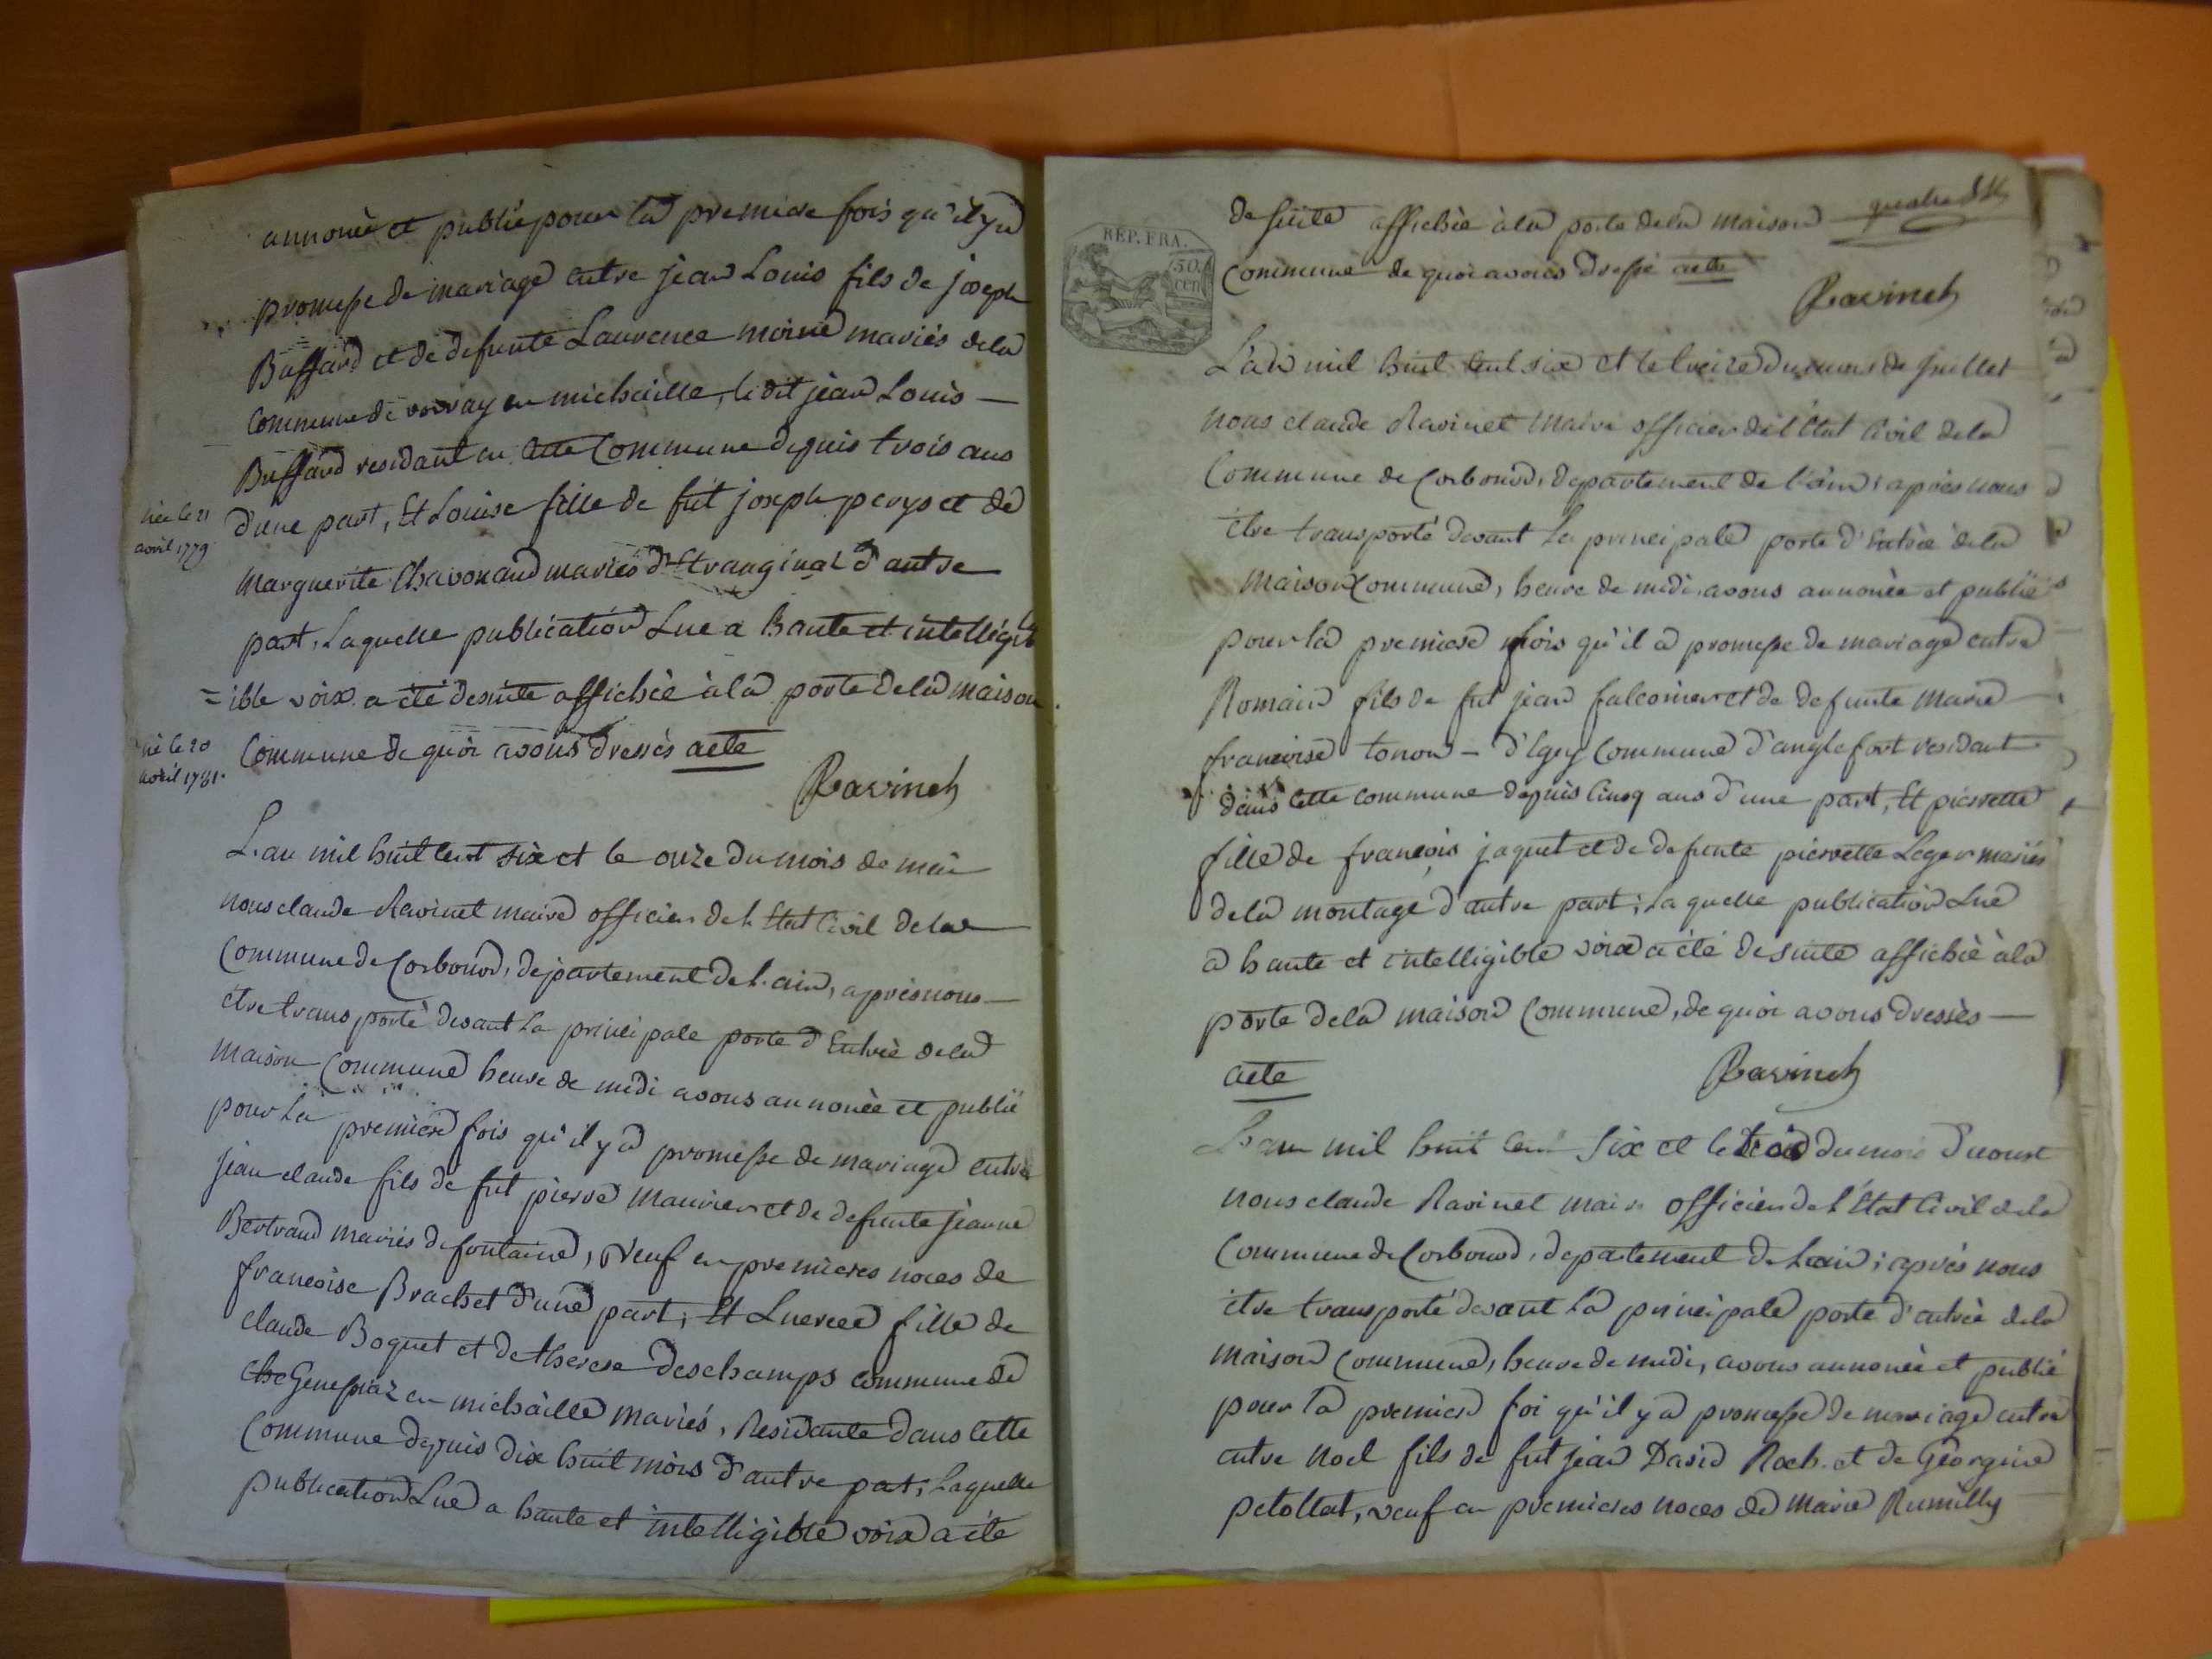 annoncé et publié pour la premiere fois qu'il y a
promesse de mariage entre jean Louis fils de joseph
Buffard et de defunte Laurence moine mariés de la
Commune de vovray en michaille, le dit jean Louis —
Buffard residant en cette Commune depuis trois ans
née le 21
avril 1779
d'une part, Et Louise fille de fut joseph perys et de
marguerite Chavonand mariés d'Etranginaz d'autre
part, Laquelle publication Lue a haute et intellégi
= ible voix a été desuite affichée à la porte de la maison
né le 20
avril 1781.
Commune de quoi avons dressés acte
Ravinet
L'an mil huit cent six et le onze du mois de mai
nous claude Ravinet maire officier de l'Etat Civil de la
Commune de Corbonod, departement de l'ain, après nous —
être transporté devant La principale porte d'Entrée de la
maison Commune heure de midi avons annoncée et publié
pour La premiere fois qu'il y a promesse de mariage entre
jean claude fils de fut pierre maurier et de defunte jeanne
Bertrand mariés de fontaine, veuf en premieres noces de
francoise Brachet d'une part, Et Lucrece fille de
claude Boquet et de therese deschamps commune de
che Genissiaz en michàille mariés, Residante dans cette
Commune depuis dix huit mois d'autre part; Laquelle
publication Lue a haute et intelligible voix a été
de suite affichée à la porte de la maison
quatre
REP. FRA.
50.
cen.
Commune de quoi avons dressé acte
Ravinet
L'an mil huit cent six et le treize du mois de juillet
nous claude Ravinet maire officier de l'Etat Civil de la
Commune de Corbonod, departement de l'ain; après nous
être transporté devant La principale porte d'Entrée de la
maison Commune, heure de midi, avons annoncée et publié
pour la premiere fois qu'il a promesse de mariage entre
Romain fils de fut jean falconier et de defunte marie
francoise tonon — d'Igey Commune d'anglefort residant
dans cette commune depuis cinq ans d'une part, Et pierrette
fille de francois jaquet et de defunte pierrette Leger mariés
de la montage d'autre part; Laquelle publication Lue
a haute et intelligible voix a été desuite affichée à la
porte de la maison Commune, de quoi avons dressès —
acte
Ravinet
L'an mil huit cent six et le trois du mois d'aoust
nous claude Ravinet maire officier de l'Etat Civil de la
Commune de Corbonod, departement de Lain; après nous
être transporté devant La principale porte d'entrée de la
maison Commune, heure de midi, avons annoncée et publié
pour la premiere foi qu'il y a promesse de mariage entre
entre noel fils de fut jean David Roch et de Géorgine
petollat, veuf en premieres noces de marie Rumilly